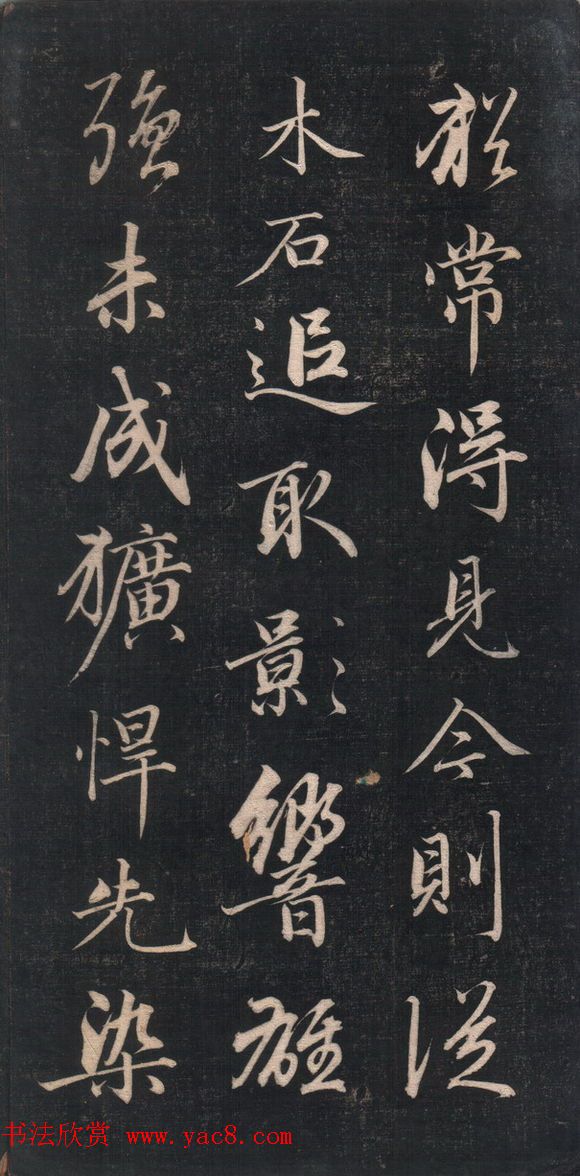 於常得見今則從
木石追取影響雄
強未成獷悍先染
书法欣赏 www.yac8.com